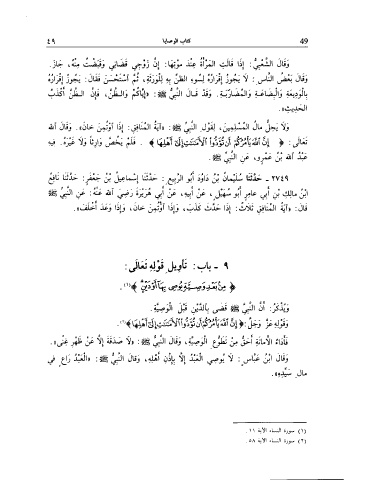 ٤٩ كتاب الوصايا 49
وَقَالَ الشَّعْبِيُّ: إِذَا قَالَتِ المَرْأَةُ عِنْدَ مَوْتِهَا: إِنَّ زَوْجِي قَضَانِي وَقَبَضْتُ مِنْهُ، جَازَ.
وَقَالَ بَعْضُ النَّاسِ: لَا يَجُوزُ إِقْرَارُهُ لِسُوءِ الظَّنِّ بِهِ لِلْوَرَثَةِ، ثُمَّ اسْتَحْسَنَ فَقَالَ: يَجُوزُ إِقْرَارُهُ
بِالْوَدِيعَةِ وَالْبِضَاعَةِ وَالْمُضَارَبَةِ. وَقَدْ قَالَ النَّبِيُّ ﷺ: «إِيَّاكُمْ وَالظَّنَّ، فَإِنَّ الظَّنَّ أَكْذَبُ
الحَدِيثِ».
وَلَا يَحِلُّ مَالُ المُسْلِمِينَ، لِقَوْلِ النَّبِيِّ ﷺ: «آيَةُ المُنَافِقِ: إِذَا اؤْتُمِنَ خَانَ». وَقَالَ اللّٰه
تَعَالَى: ﴿ إِنَّ اللَّهَ يَأْمُرُكُمْ أَن تُؤَدُّوا الْأَمَنَتِ إِلَى أَهْلِهَا ﴾ . فَلَمْ يَخُصَّ وَارِثًا وَلَا غَيْرَهُ. فِيهِ
عَبْدُ اللّٰه بْنُ عَمْرٍو، عَنِ النَّبِيِّ ﷺ.
٢٧٤٩ - حَدَّثَنَا سُلَيْمَانُ بْنُ دَاوُدَ أَبُو الرَّبِيعِ: حَدَّثَنَا إِسْمَاعِيلُ بْنُ جَعْفَرٍ: حَدَّثَنَا نَافِعُ
ابْنُ مَالِكِ بْنِ أَبِي عَامِرٍ أَبُو سُهَيْلٍ، عَنْ أَبِيهِ، عَنْ أَبِي هُرَيْرَةَ رَضِيَ اللّٰه عَنْهُ: عَنِ النَّبِيِّ ﷺ
قَالَ: «آيَةُ المُنَافِقِ ثَلَاثٌ: إِذَا حَدَّثَ كَذَبَ، وَإِذَا اؤْتُمِنَ خَانَ، وَإِذَا وَعَدَ أَخْلَفَ».
٩ - باب: تَأْوِيلِ قَوْلِهِ تَعَالَى:
﴿ مِنْ بَعْدِ وَصِيَّةٍ يُوصِي بِهَا أَوْ دَيْنٍ ﴾(١).
وَيُذْكَرُ: أَنَّ النَّبِيَّ ﷺ قَضَى بِالدَّيْنِ قَبْلَ الْوَصِيَّةِ.
وَقَوْلِهِ عَزَّ وَجَلَّ: ﴿إِنَّ اللَّهَ يَأْمُرُكُمْ أَن تُؤَدُّوا الْأَمَنَتِ إِلَى أَهْلِهَا﴾(٢).
فَأَدَاءُ الْأَمَانَةِ أَحَقُّ مِنْ تَطَوُّعِ الْوَصِيَّةِ، وَقَالَ النَّبِيُّ ﷺ: «لَا صَدَقَةَ إِلَّا عَنْ ظَهْرِ غِنًى».
وَقَالَ ابْنُ عَبَّاسٍ: لَا يُوصِي الْعَبْدُ إِلَّا بِإِذْنِ أَهْلِهِ، وَقَالَ النَّبِيُّ ﷺ: «الْعَبْدُ رَاعٍ فِي
مَالِ سَيِّدِهِ».
(١) سورة النساء الآية ١١.
(٢) سورة النساء الآية ٥٨.